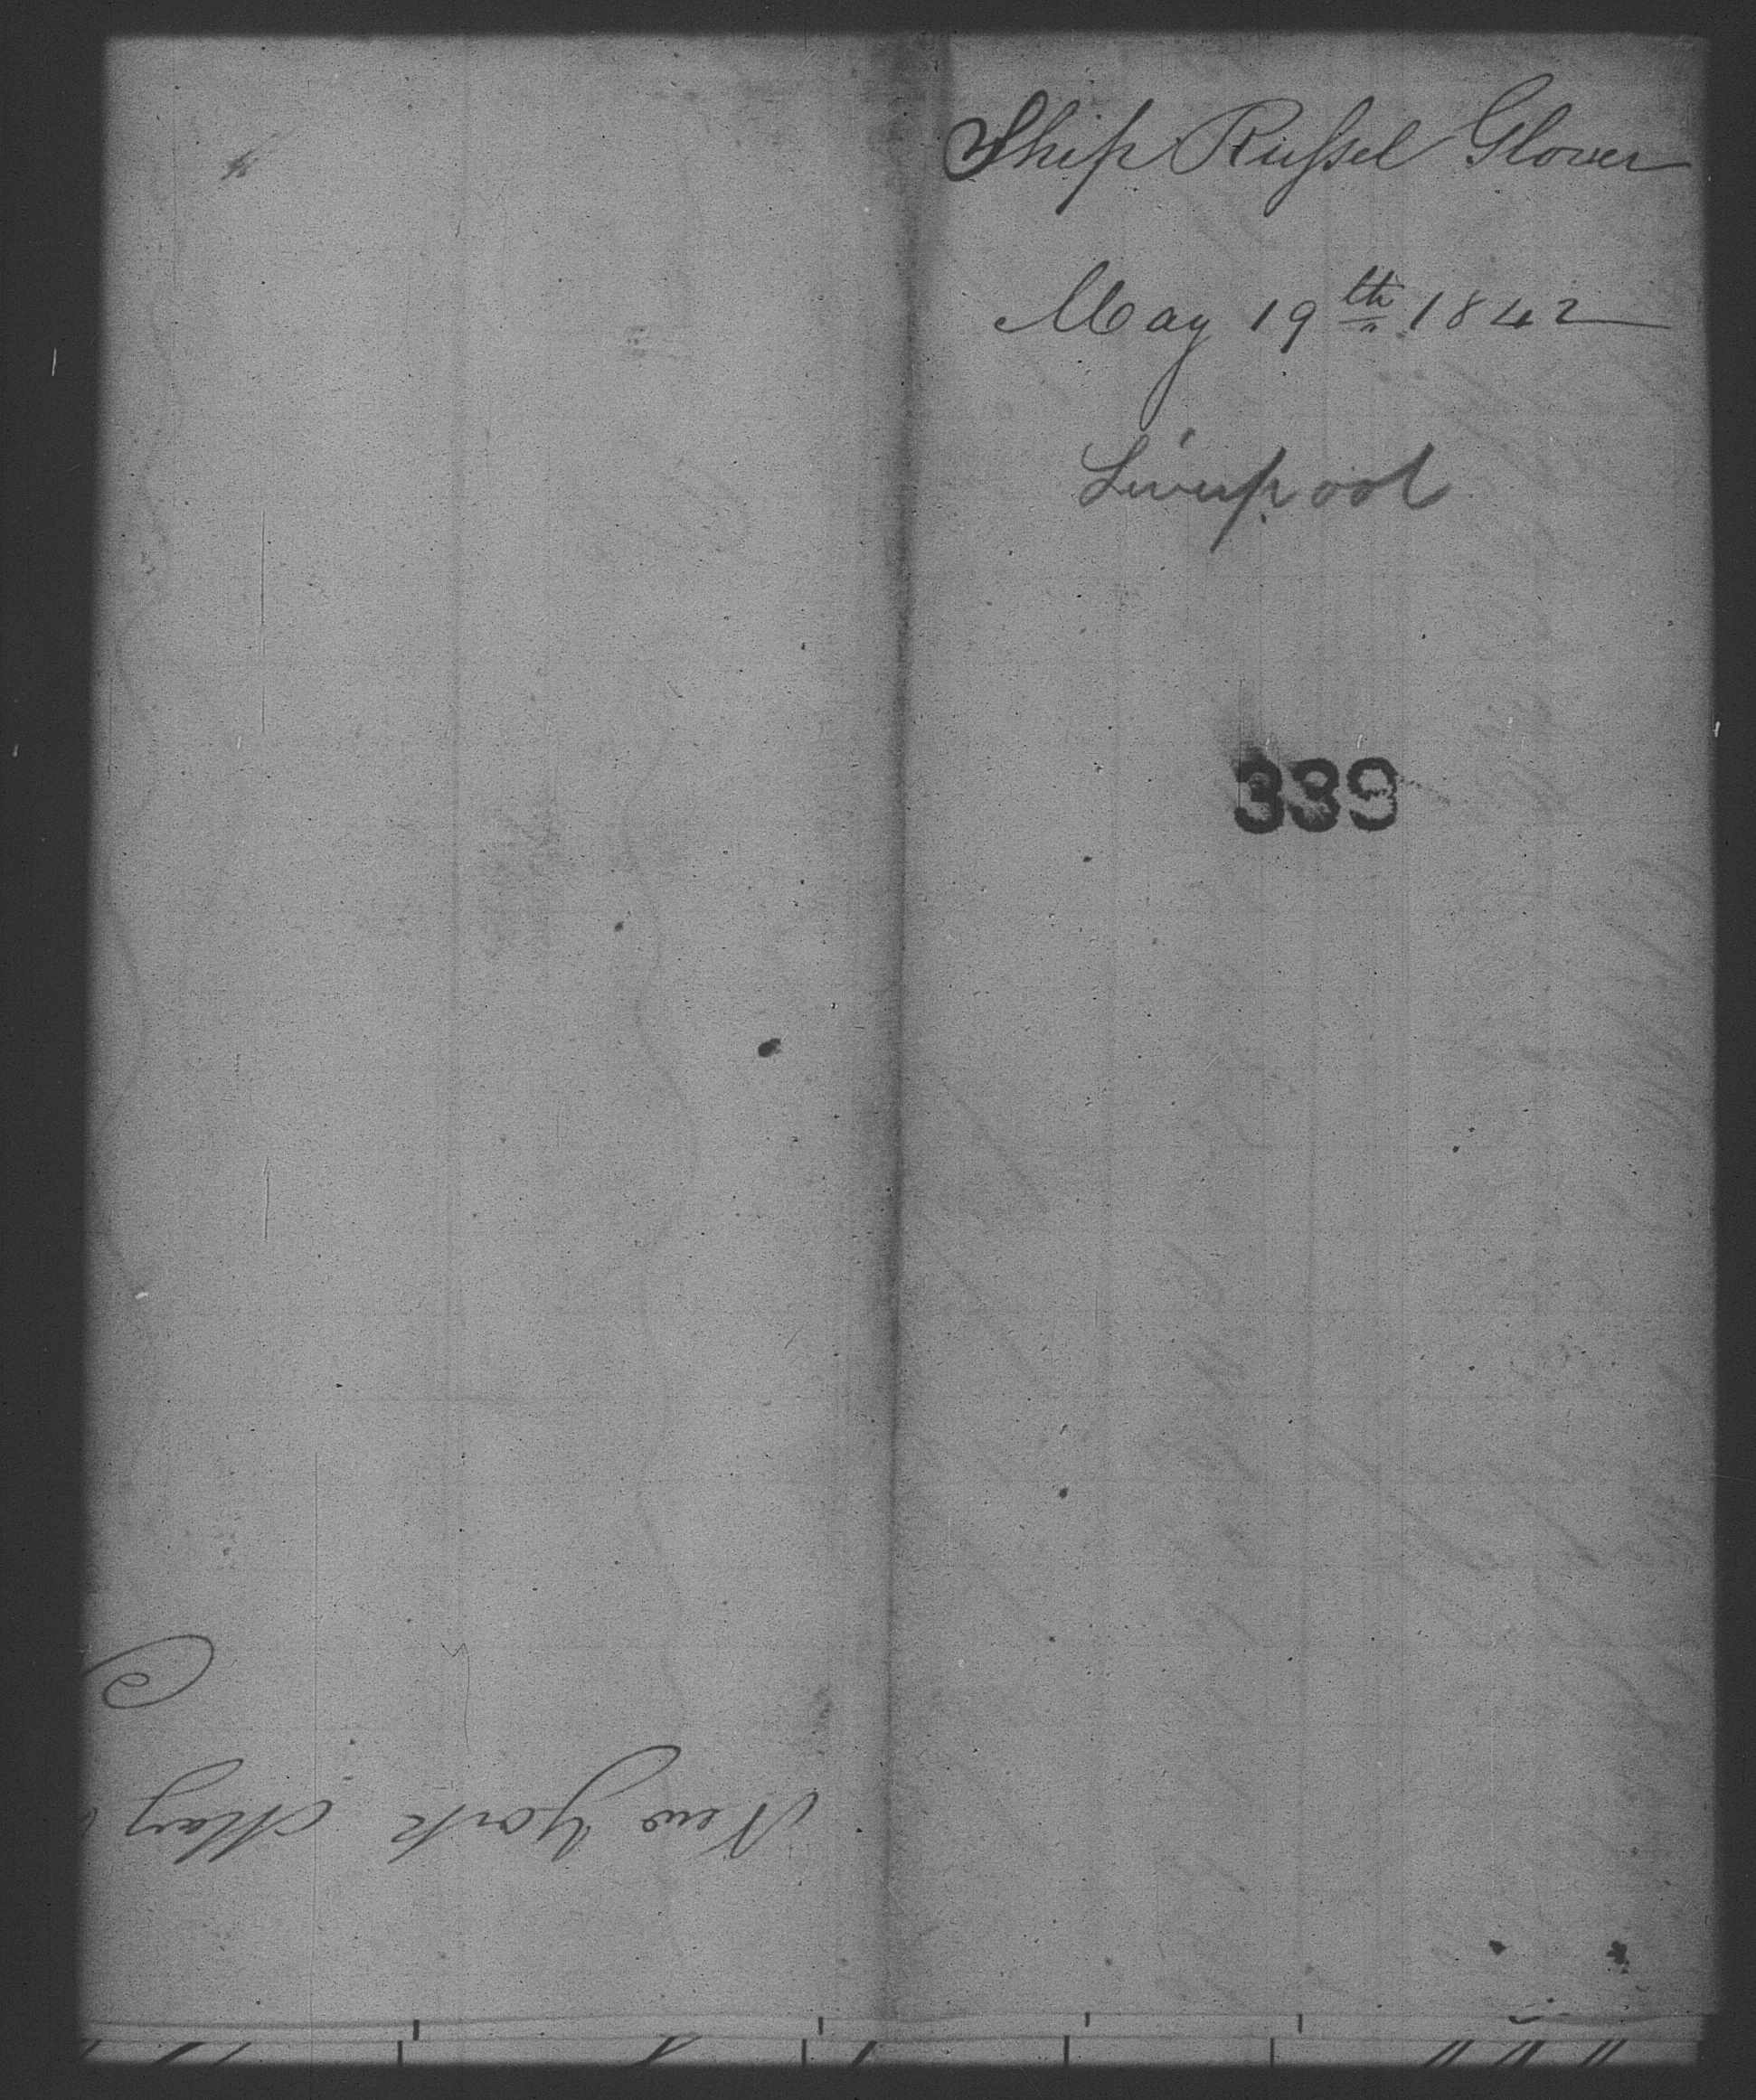 Ship Russel Glover
May 19th 1842
Liverpool
339
New York May